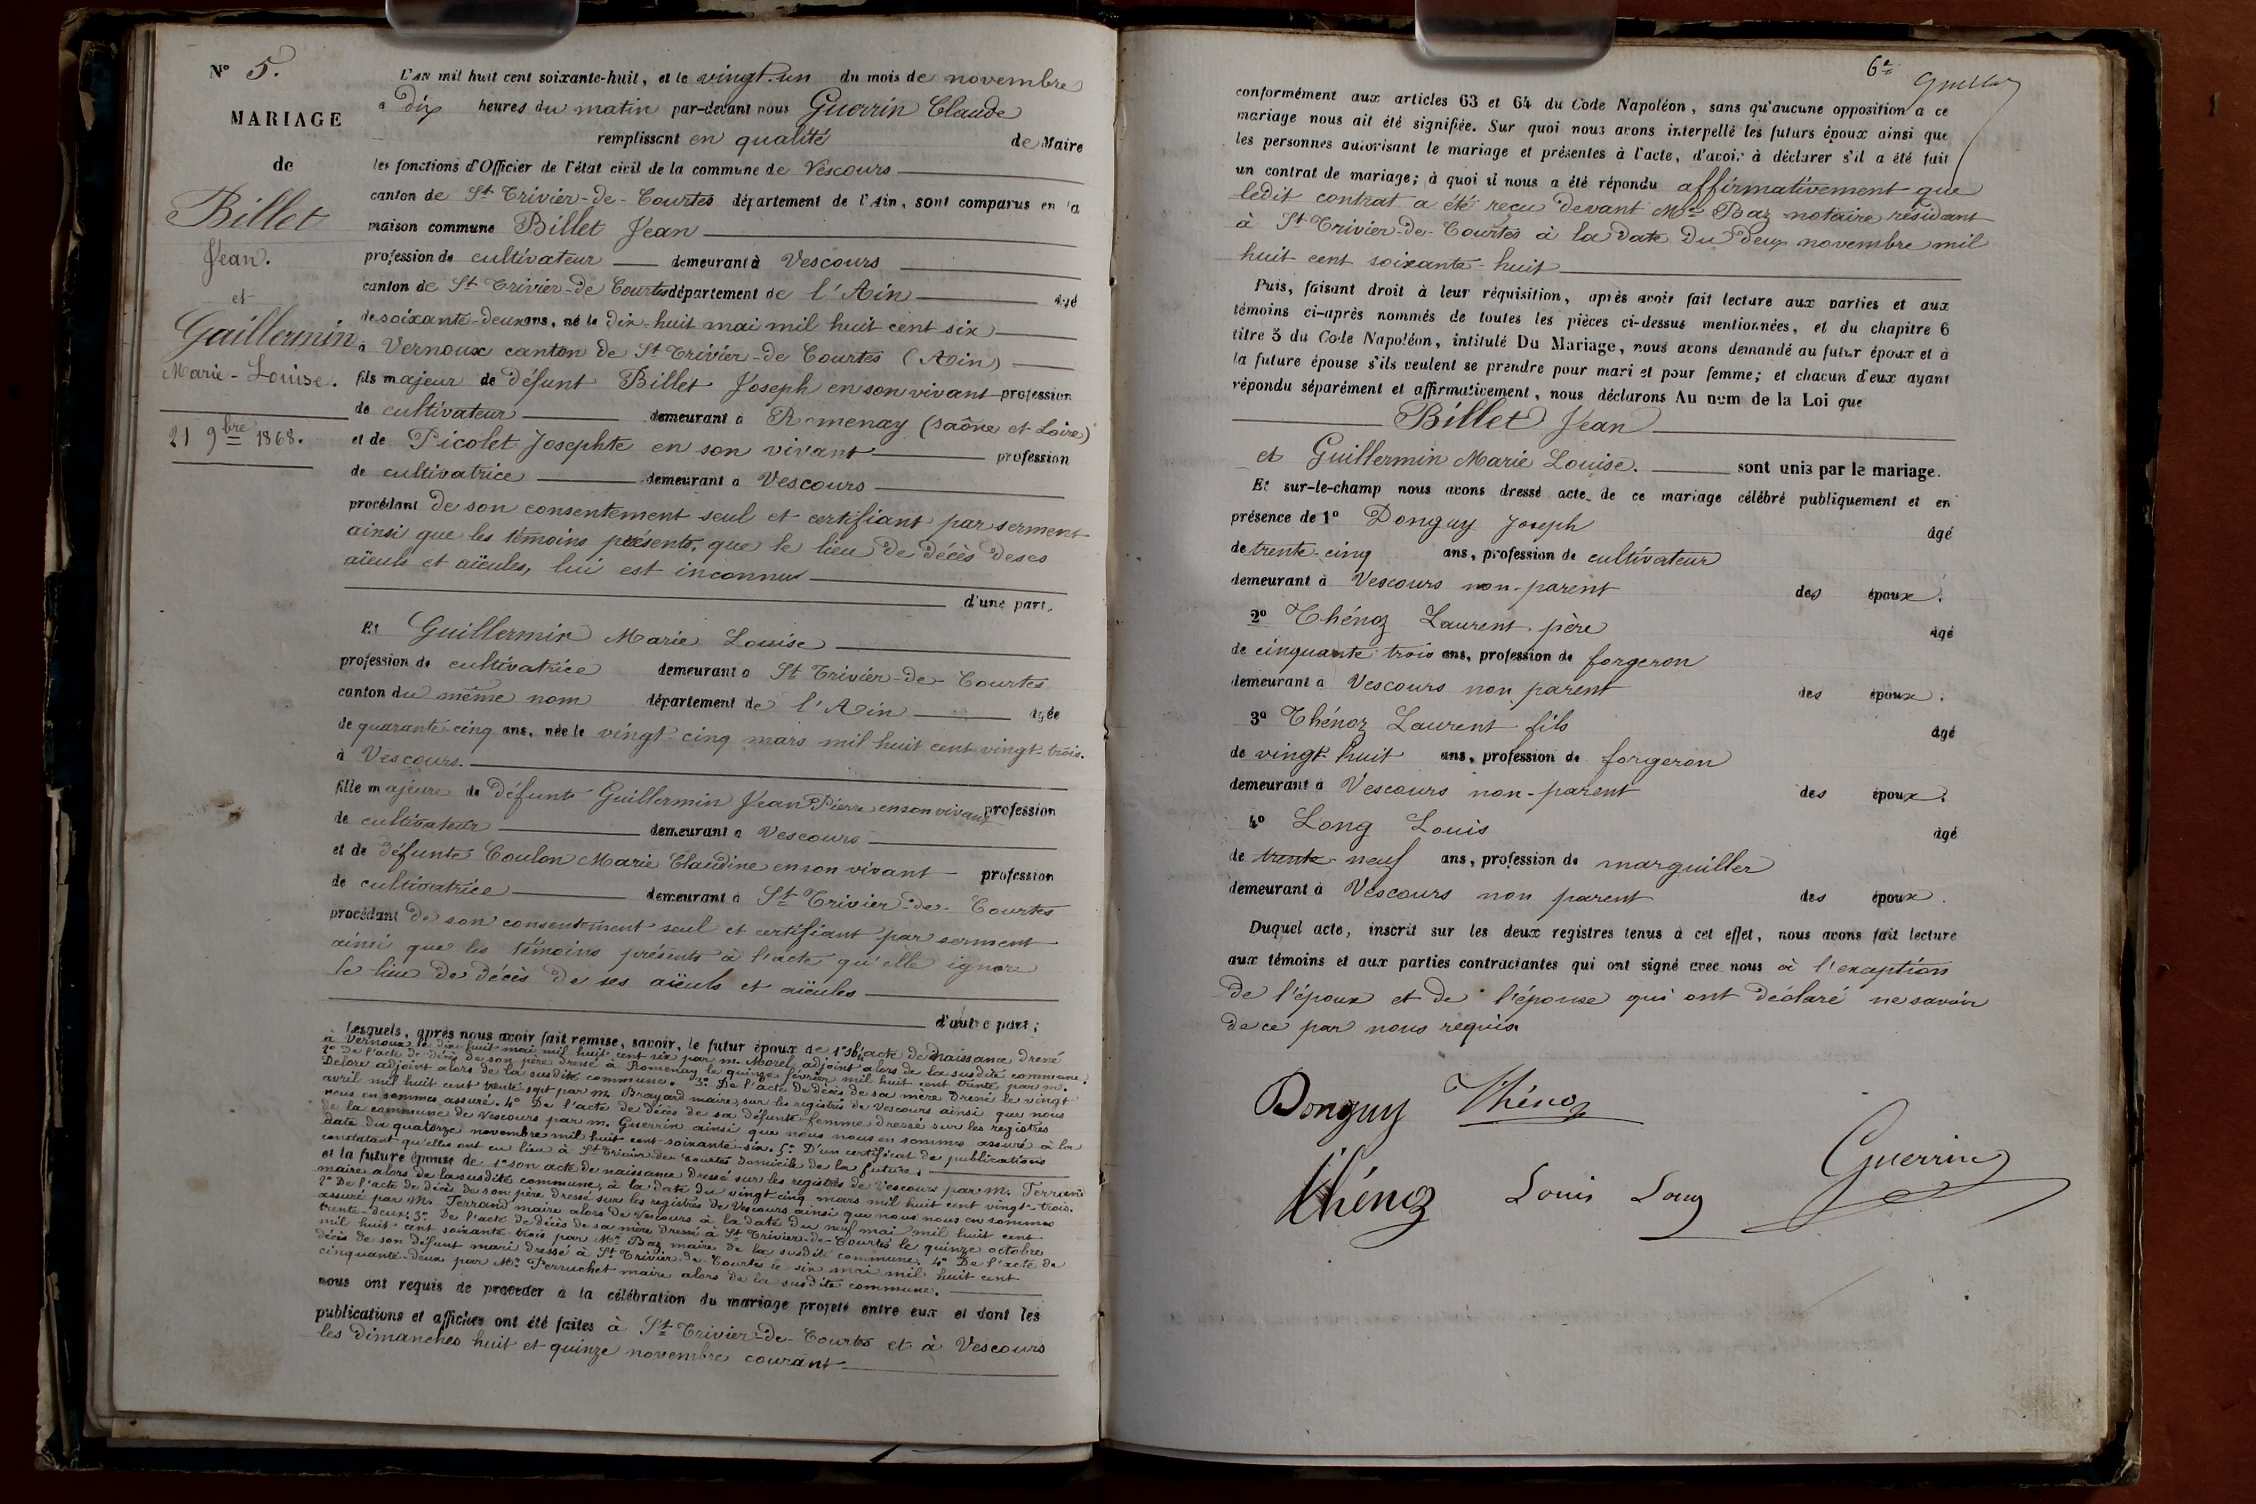 N° 5.
MARIAGE
de
Billet
Jean.
et
Guillermin
Marie-Louise.
21 9bre 1868.
L'an mil huit cent soixante-huit, et le vingt-un du mois de novembre
à dix heures du matin par-devant nous Guerrin Claude
remplissant en qualité de Maire
les fonctions d'Officier de l'état civil de la commune de Vescours
canton de St Trivier-de-Courtes département de l'Ain, sont comparus en la
maison commune Billet Jean
profession de cultivateur demeurant à Vescours
canton de St Trivier-de Courtes département de l'Ain âgé
de soixante-deux ans, né le dix-huit mai mil huit cent six
à Vernoux canton de St Trivier-de Courtes (Ain)
fils majeur de défunt Billet Joseph en son vivant profession
de cultivateur demeurant à Romenay (saône et Loire)
et de Picolet Josephte en son vivant profession
de cultivatrice demeurant à Vescours
procédant de son consentement seul et certifiant par serment
ainsi que les témoins présents, que le lieu de décès de ses
aïeuls et aïeules, lui est inconnu
d'une part,
Et Guillermin Marie Louise
profession de cultivatrice demeurant à St Trivier-de-Courtes
canton du même nom département de l'Ain âgée
de quarante-cinq ans, née le vingt-cinq mars mil huit cent vingt-trois.
à Vescours.
fille majeure de défunt Guillermin Jean Pierre en son vivant profession
de cultivateur demeurant à Vescours
et de défunte Coulon Marie Claudine en son vivant profession
de cultivatrice demeurant à St Trivier-de-Courtes
procédant de son consentement seul et certifiant par serment
ainsi que les témoins présents à l'acte qu'elle ignore
le lieu de décès de ses aïeuls et aïeules
d'autre part;
Lesquels, après nous avoir fait remise, savoir, le futur époux de 1° Sn acte de naissance dressé
à Vernoux le dix-huit mai mil huit cent six par m. Morel adjoint alors de la susdite commune.
2° De l'acte de décès de son père dressé à Romenay le quinze février mil huit cent trente par m.
Delore adjoint alors de la susdite commune. 3° De l'acte de décès de sa mère dressé le vingt
avril mil huit cent trente sept par M. Brayard maire, sur les registres de Vescours ainsi que nous
nous en sommes assuré. 4° De l'acte de décès de sa défunte femme dressé sur les registres
de la commune de Vescours par m. Guerrin ainsi que nous nous en sommes assuré à la
date du quatorze novembre mil huit cent soixante-six. 5° D'un certificat de publications
constatant qu'elles ont eu lieu à St Trivier-de-Courtes domicile de la future.
et la future épouse de 1° son acte de naissance dressé sur les registres de Vescours par M. Terrand
maire alors de la susdite commune, à la date du vingt cinq mars mil huit cent vingt-trois.
2° De l'acte de décès de son père dressé sur les registres de Vescours ainsi que nous nous en sommes
assuré par M. Terrand maire alors de Vescours à la date du neuf mai mil huit cent
trente-deux. 3° De l'acte de décès de sa mère dressé à St Trivier-de-Courtes le quinze octobre
mil huit cent soixante-trois par Mr Baz maire de la susdite commune. 4° De l'acte de
décès de son défunt mari dressé à St Trivier-de-Courtes le six mai mil huit cent
cinquante-deux par Mr Perruchet maire alors de la susdite commune.
nous ont requis de procéder à la célébration du mariage projeté entre eux et dont les
publications et affiches ont été faites à St Trivier-de-Courtes et à Vescours
les dimanches huit et quinze novembre courant
6e
conformément aux articles 63 et 64 du Code Napoléon, sans qu'aucune opposition à ce
mariage nous ait été signifiée. Sur quoi nous avons interpellé les futurs époux ainsi que
les personnes autorisant le mariage et présentes à l'acte, d'avoir à déclarer s'il a été fait
un contrat de mariage; à quoi il nous a été répondu affirmativement que
ledit contrat a été reçu devant Mre Baz notaire résidant
à St Trivier-de-Courtes à la date du deux novembre mil
huit cent soixante-huit
Puis, faisant droit à leur réquisition, après avoir fait lecture aux parties et aux
témoins ci-après nommés de toutes les pièces ci-dessus mentionnées, et du chapitre 6
titre 5 du Code Napoléon, intitulé Du Mariage, nous avons demandé au futur époux et à
la future épouse s'ils veulent se prendre pour mari et pour femme; et chacun d'eux ayant
répondu séparément et affirmativement, nous déclarons Au nom de la Loi que
Billet Jean
et Guillermin Marie Louise. sont unis par le mariage.
Et sur-le-champ nous avons dressé acte de ce mariage célébré publiquement et en
présence de 1° Donguy Joseph âgé
de trente-cinq ans, profession de cultivateur
demeurant à Vescours non-parent des époux.
2° Thénoz Laurent père âgé
de cinquante trois ans, profession de forgeron
demeurant à Vescours non parent des époux.
3° Thénoz Laurent fils âgé
de vingt huit ans, profession de forgeron
demeurant à Vescours non-parent des époux.
4° Long Louis âgé
de trente-neuf ans, profession de marguiller
demeurant à Vescours non parent des époux.
Duquel acte, inscrit sur les deux registres tenus à cet effet, nous avons fait lecture
aux témoins et aux parties contractantes qui ont signé avec nous à l'exception
de l'époux et de l'épouse qui ont déclaré ne savoir
de ce par nous requis
Donguy Thénoz
Thénoz Louis Long Guerrin